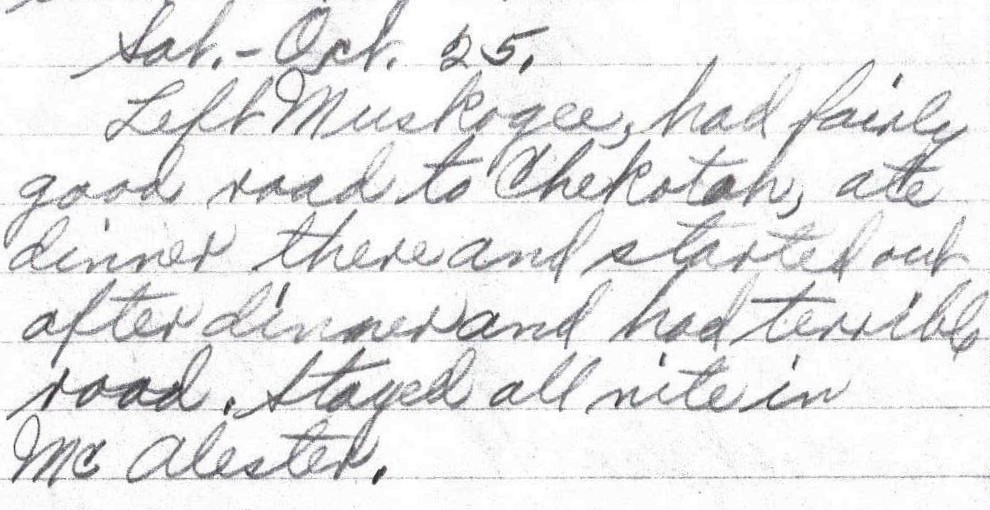 Sat.- Oct. 25.
Left Muskogee, had fairly
good road to Chekotah, ate
dinner there and started out
after dinner and had terrible
road. Stayed all nite in
Mc Alester.